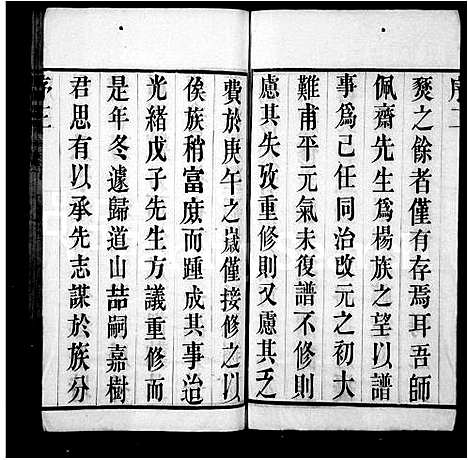 序二
燹之餘者僅有存焉耳吾師
佩齋先生爲楊族之望以譜
事爲己任同治改元之初大
難甫平元氣未復譜不修則
慮其失攷重修則又慮其乏
費於庚午之歲僅接修之以
俟族稍富庶而踵成其事治
光緒戊子先生方議重修而
是年冬遽歸道山喆嗣嘉樹
君思有以承先志謀於族分
序三